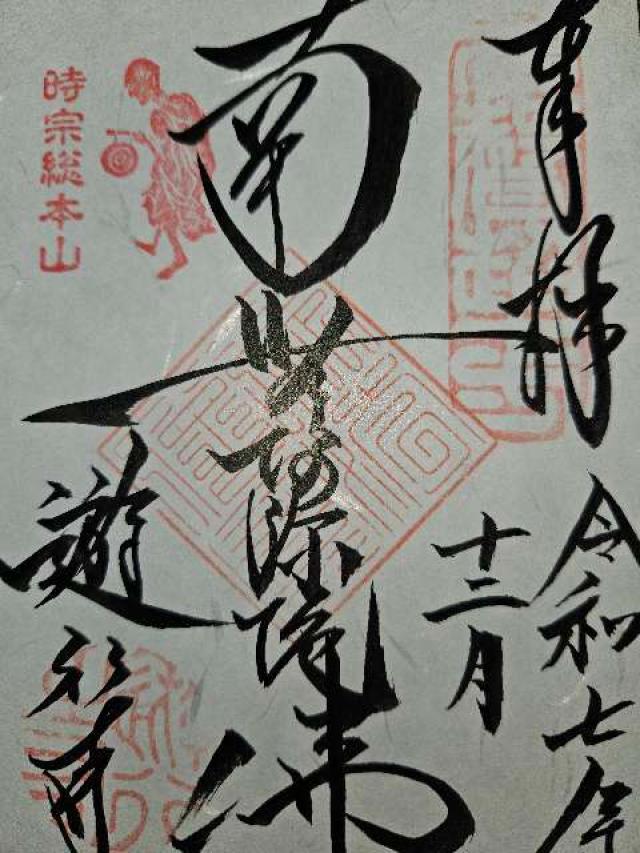 奉拝
令和七年
十二月
南無阿弥陀佛
時宗総本山
遊行寺